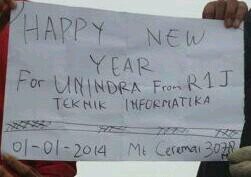 HAPPY NEW
YEAR
For UNINDRA From R1J
TEKNIK INFORMATIKA
01-01-2014 Mt Ceremai 3078 M